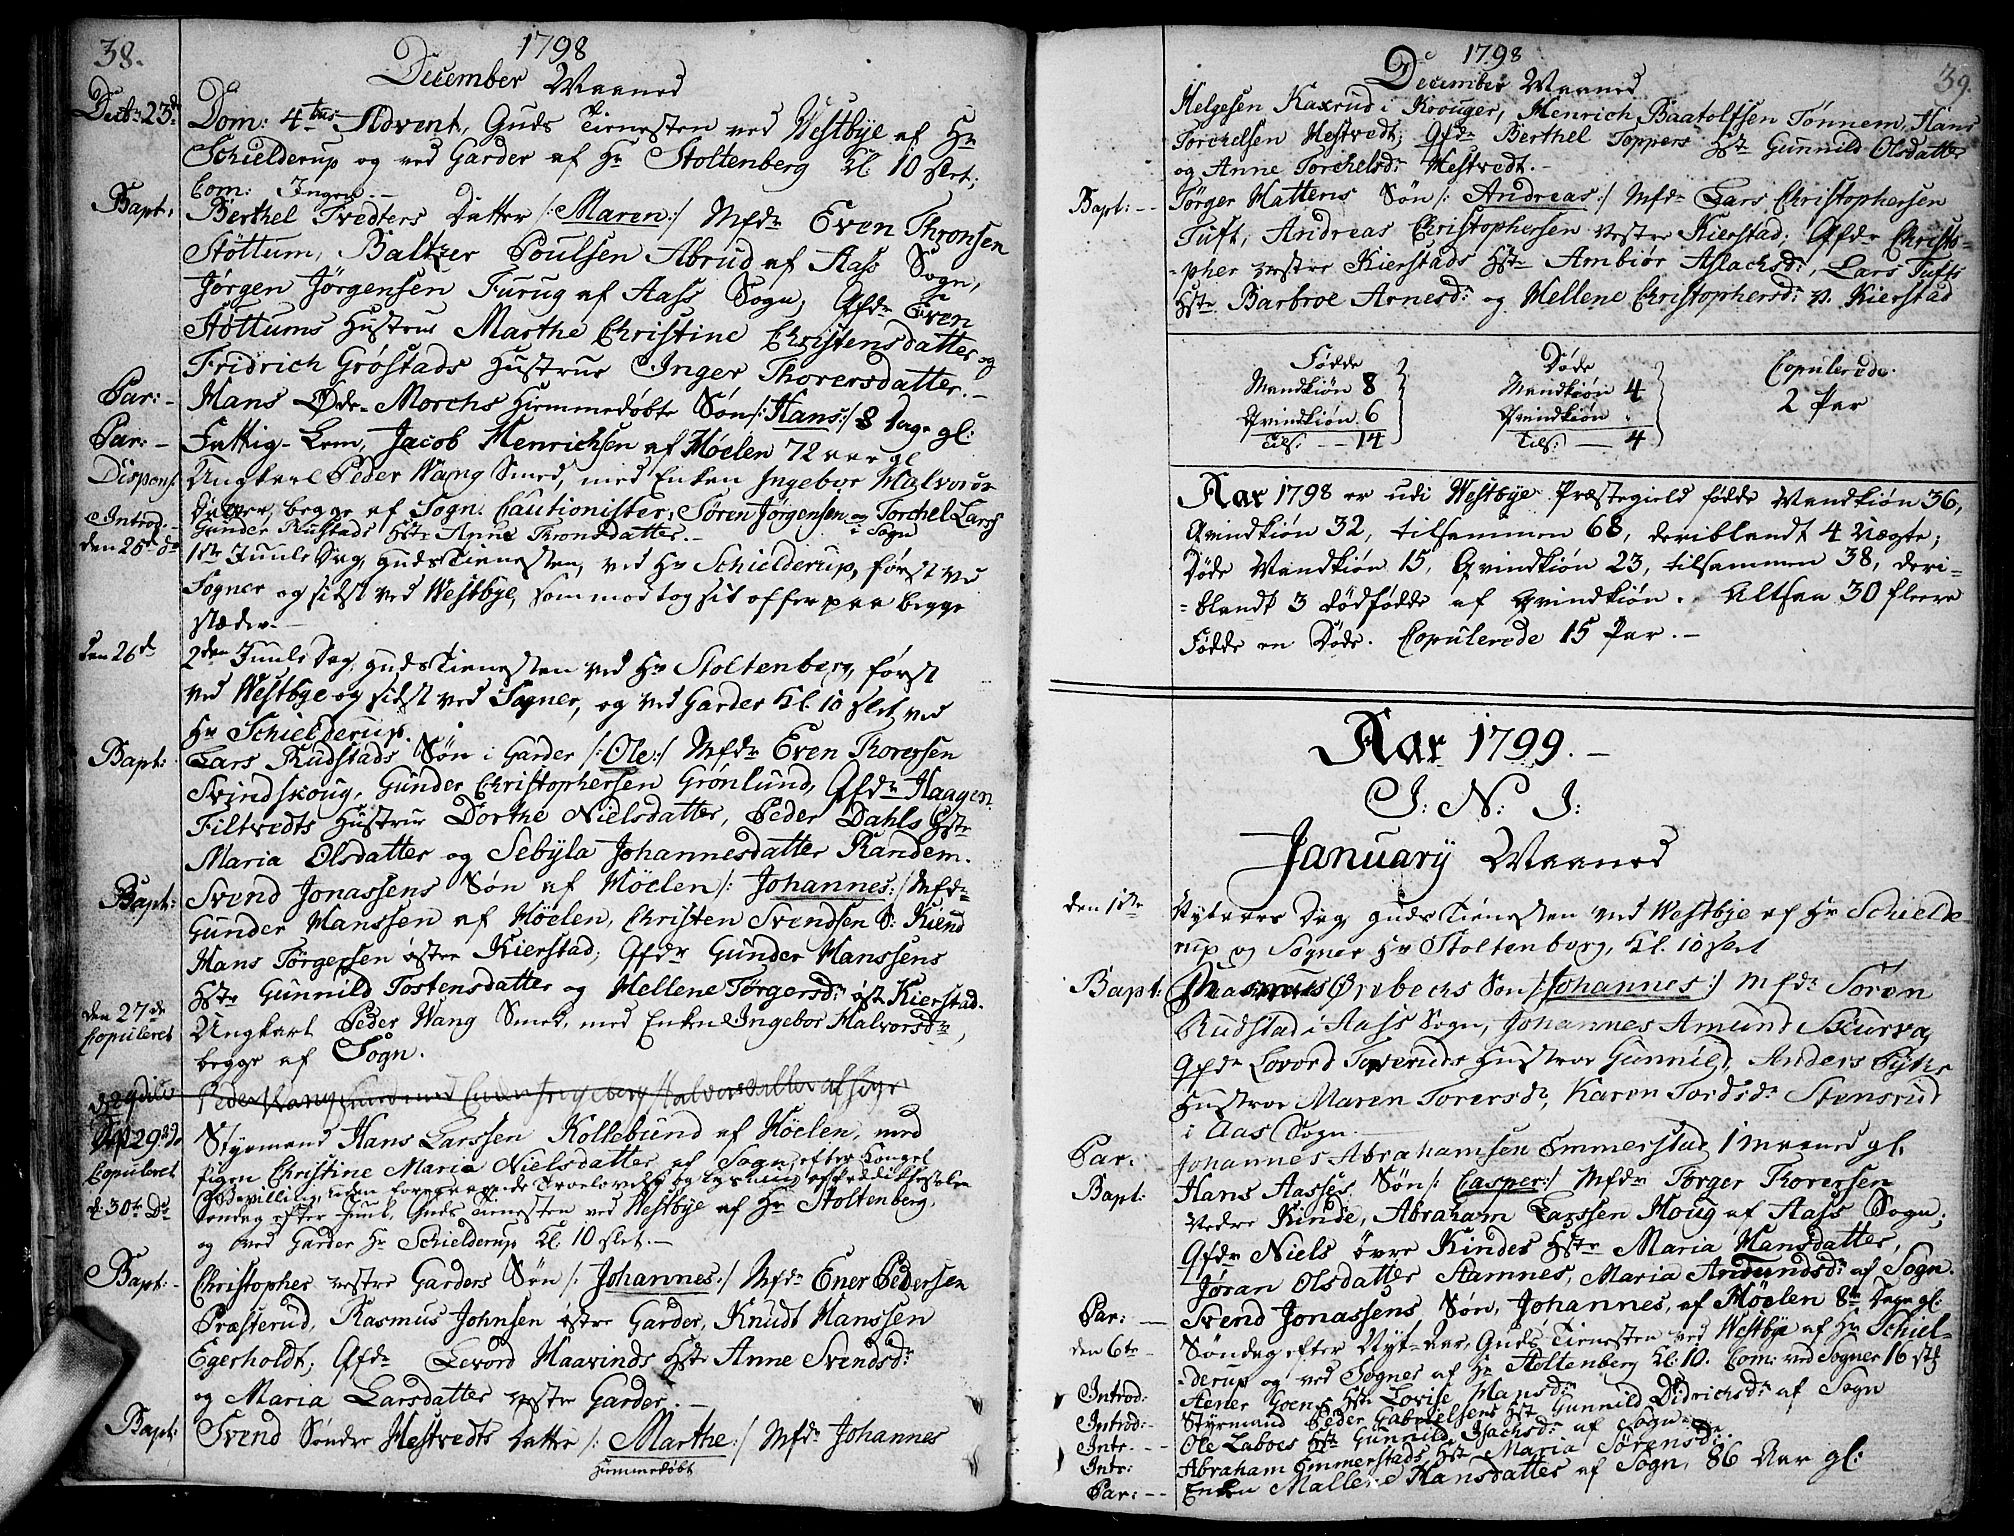 38.
1798
December Maaned
Decb: 23de Dom: 4tus Advent, Guds Tienesten ved Westbye af Hr
Schielderup og ved Garder af Hr Stoltenberg Kl. 10 slet;
Com: Ingen.-
Bapt: Berthel Tvedters Datter /: Maren :/ Mfdr Even Thronsen
Støttum, Baltzer Poulsen Abrud af Aass Sogn,
Jørgen Jørgensen Furug af Aass Sogn, Qfdr Even
Støttums Hustrue Marthe Christine Christensdatter og
Fridrich Gróstads Hustrue Inger Thorersdatter.-
Par: - Hans Øde-Morchs Hiemmedøbte Søn /: Hans :/ 8 Dage gl:
Par: - Fattig-Lem, Jacob Henrichsen af Høelen 72 aar gl
Dispens: Ungkarl Peder Wang Smed, med Enken Ingebor Halvors
Datter, begge af Sogn. Cautionister, Søren Jørgensen og Torchel Larss
i Sogn
Introd. - Gunder Rustads Hstr Anne Thronsdatter.-
den 25de do 1ste Juule Dag, Guds Tienesten, ved Hr Schielderup, først ved
Sogner og sidst ved Westbye, som modtog sit offer paa begge
stæder.-
den 26de 2den Juule Dag Guds Tienesten ved Hr Stoltenberg, først
ved Westbye og sidst ved Sogner, og ved Garder Kl. 10 slet ved
Hr Schielderup.
Bapt: Lars Rudstads Søn i Garder /: Ole :/ Mfdr Even Thoresen
Svindskoug, Gunder Christophersen Grónlund, Qfdr Haagen
Filtvedts Hustrue Dorthe Nielsdatter, Peder Dahls Hstr
Maria Olsdatter og Sebÿla Johannesdatter Randem.
Bapt: Svend Jonassens Søn af Høelen /: Johannes :/ Mfdr
Gunder Hanssen af Høelen, Christen Svendsen
Hans Törgersen östre Kierstad; Qfdr Gunder Hanssens
Hstr Gunnild Tostensdatter og Hellene Törgersdr öst. Kierstad.
den 27de Ungkarl Peder Wang Smed, med Enken Ingebor Halvorsdr,
Copuleret begge af Sogn.
Peder Wang Smed med Enken Ingeborg Halvorsdatter af Sogn
29de Styrmand Hans Larssen Kollebund af Høelen, med
Copuleret Pigen Christine Maria Nielsdatter af Sogn, efter Kongel
Bevilling, uden foregaaende Troelovelse og Lysning af Prædikestolen
d: 30te Do Søndag efter Juul, Guds Tienesten ved Westbye af Hr Stoltenberg,
og ved Garder Hr Schielderup Kl. 10 slet.-
Bapt: - Christopher vestre Garders Søn /: Johannes :/ Mfdr Ener Pedersen
Præsterud, Rasmus Johnsen östre Garder, Knudt Hanssen
Egerholdt; Qfdr Levord Haavinds Hstr Anne Svendsdr
og Maria Larsdatter vestre Garder.-
Bapt: Svend Søndre Hestvedts Datter /: Marthe :/ Mfdr Johannes
Hiemmedøbt
39.
1798
December Maaned
Helgesen Kaxrud i Krouger, Henrich Baatolfsen Tønnem, Hans
Torchelsen Hestvedt; Qfdr Berthel Toppers Hstr Gunnild Olsdatter
og Anne Torchelsdr Hestvedt.-
Bapt: -- Törger Hattens Søn /: Andreas :/ Mfdr Lars Christophersen
Tuft, Andreas Christophersen vestre Kierstad; Qfdr Christo-
-pher vestre Kierstads Hstr Ambiør Aslachsdr, Lars Tufts
Hstr Barbroe Arnesdr og Hellene Christophersdr v. Kierstad
Fødde
Mandkiøn 8
Qvindkiøn 6
Tils: -- 14
Døde
Mandkiøn 4
Qvindkiøn "
Tils: -- 4
Copulerede.
2 Par
Aar 1798 er udi Westbye Præstegield fødde Mandkiøn 36,
Qvindkiøn 32, tilsammen 68, deriblandt 4 Uægte;
Døde Mandkiøn 15, Qvindkiøn 23, tilsammen 38, deri-
-blandt 3 dödfødde af Qvindkiøn. Altsaa 30 fleere
Fødde en Døde. Copulerede 15 Par.-
Aar 1799.-
J: N: J:
Januarÿ Maaned
den 1ste Nytaars Dag, Guds Tienesten ved Westbye af Hr Schielde
rup og Sogner Hr Stoltenberg, Kl. 10 slet
Bapt: Rasmus Ørebechs Søn /: Johannes :/ Mfdr Soren
Rudstad i Aass Sogn, Johannes Amund Skurva,
Qfdr Levord Toveruds Hustroe Gunnild, Anders
Hustroe Maren Torersdr, Karen Tordsdr Stensrud
i Aas Sogn
Par: Johannes Abrahamsen Emmerstad 1 Maaned gl.
Bapt: Hans Aasses Søn /: Casper :/ Mfdr Törger Thorersen
Nedre Kinde, Abraham Larssen Houg af Aass Sogn;
Qfdr Niels övre Kindes Hstr Maria Hansdatter,
Jøran Olsdatter Stamnes, Maria Amundsdr af Sogn.
Par: -- Svend Jonassens Søn, Johannes, af Høelen 8te Dage gl.
den 6te - Søndag efter Nyt-aar, Guds Tienesten ved Westbye af Hr Schiel-
-derup og ved Sognes af Hr Stoltenberg Kl. 10. Com: ved Sogner 16 stk
Introd: Aener Goens Hstr Lovise Hansdr
Introd: Styrmand Peder Gabrielsens Hst Gunnild Didrichsdr af Sogn
Intr. -- Ole Laboes Hstr Gunnild Isachsdr af Sogn
Intr: Abraham Emmerstads Hstr Maria Sörensdr.
Par: -- Enken Mallene Hansdatter af Sogn, 86 Aar gl: